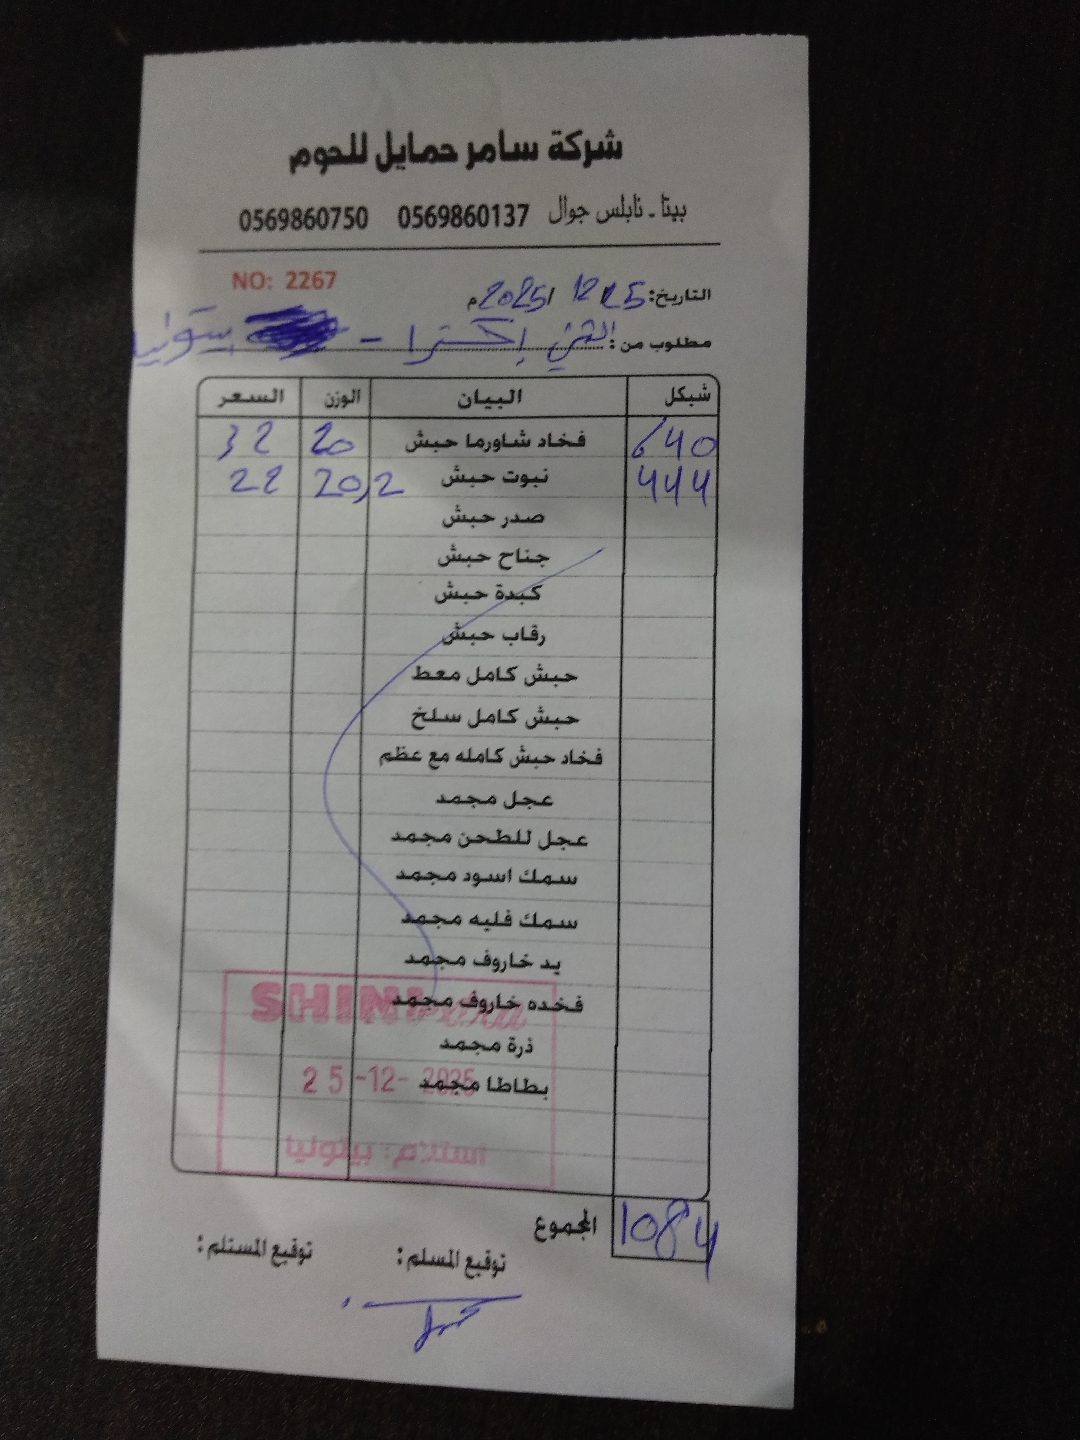 شركة سامر حمايل للحوم
بيتا - نابلس جوال 0569860137 0569860750
NO: 2267
التاريخ: 25/12/2025م
مطلوب من: الشني إكسترا - بيتونيا
شيكل البيان الوزن السعر
640 فخاد شاورما حبش 20 32
444 نبوت حبش 20,2 22
صدر حبش
جناح حبش
كبدة حبش
رقاب حبش
حبش كامل معط
حبش كامل سلخ
فخاد حبش كامله مع عظم
عجل مجمد
عجل للطحن مجمد
سمك اسود مجمد
سمك فليه مجمد
يد خاروف مجمد
فخده خاروف مجمد
SHINI extra
ذرة مجمد
بطاطا مجمد
25-12-2025
استلام: بيتونيا
المجموع 1084
توقيع المسلم: توقيع المستلم: